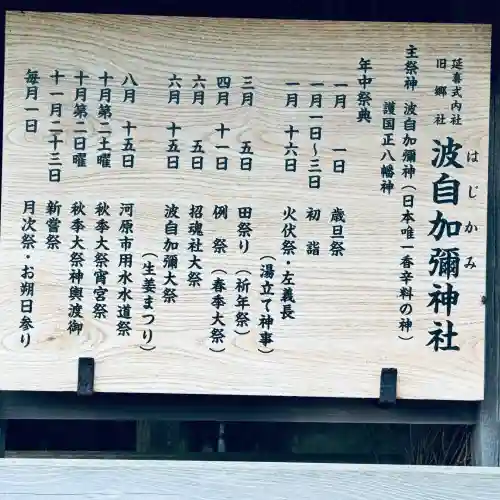 延喜式内社
旧郷社
波自加彌神社
はじかみ
主祭神 波自加彌神(日本唯一香辛料の神)
護国正八幡神
年中祭典
一月 一日 歳旦祭
一月一日~三日 初詣
一月 十六日 火伏祭・左義長
(湯立て神事)
三月 五日 田祭り(祈年祭)
四月 十一日 例祭(春季大祭)
六月 五日 招魂社大祭
六月 十五日 波自加彌大祭
(生姜まつり)
八月 十五日 河原市用水水道祭
十月第二土曜 秋季大祭宵宮祭
十月第二日曜 秋季大祭神輿渡御
十一月二十三日 新嘗祭
毎月一日 月次祭・お朔日参り